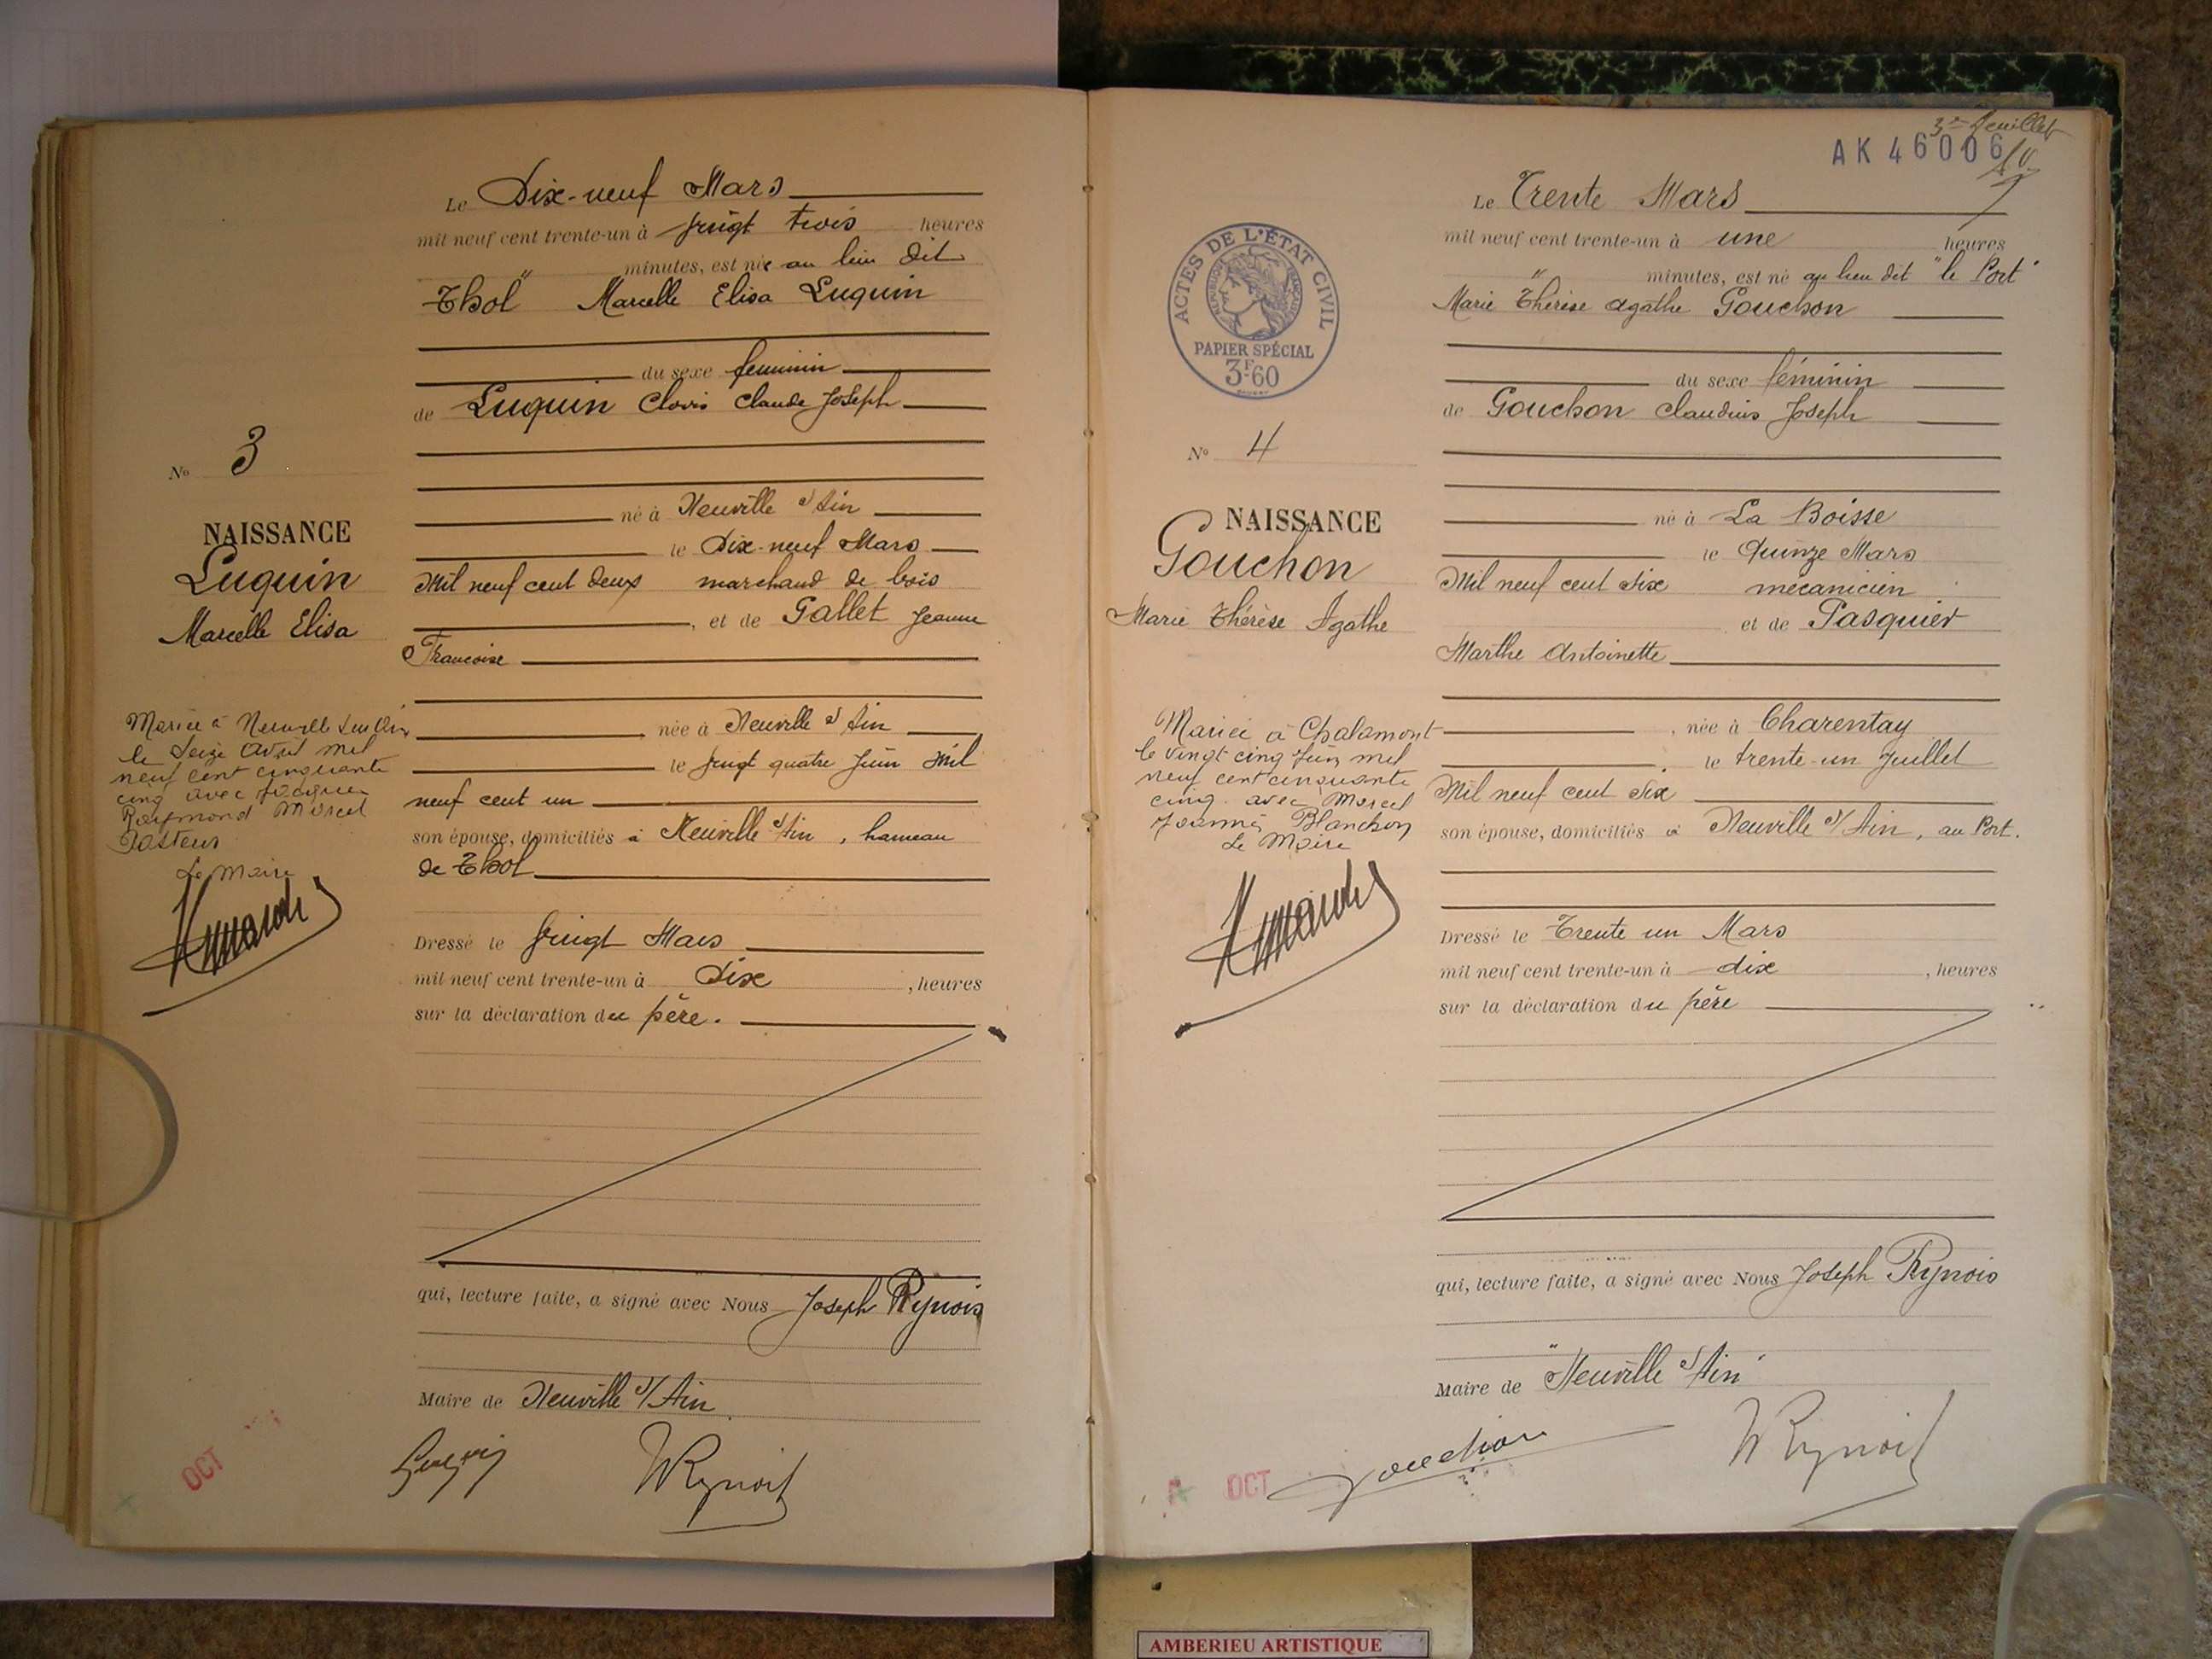 Le Dix-neuf Mars
mil neuf cent trente-un à vingt trois heures
" minutes, est née au lieu dit
Thol Marcelle Elisa Luquin
du sexe féminin
de Luquin Clovis Claude Joseph
né à Neuville s/ Ain
le Dix-neuf Mars
Mil neuf cent deux marchand de bois
, et de Gallet Jeanne
Francoise
née à Neuville s/ Ain
le vingt quatre Juin Mil
neuf cent un
son épouse, domiciliés à Neuville s/Ain, hameau
de Thol
Dressé le vingt Mars
mil neuf cent trente-un à dix , heures
sur la déclaration du père.
qui, lecture faite, a signé avec Nous Joseph Rynois
Maire de Neuville s/ Ain
Luquin
Rynois
No 3
NAISSANCE
Luquin
Marcelle Elisa
Mariée à Neuville sur Ain
le seize Avril mil
neuf cent cinquante
cinq avec
Raymond Marcel
Pasteur
Le Maire
OCT
3e feuillet
AK 46006
10
Le Trente Mars
mil neuf cent trente-un à une heures
" minutes, est né au lieu dit "le Port"
Marie Thérèse Agathe Gouchon
du sexe féminin
de Gouchon Claudius Joseph
né à La Boisse
le Quinze Mars
Mil neuf cent six mécanicien
et de Pasquier
Marthe Antoinette
, née à Charentay
le trente-un Juillet
Mil neuf cent six
son épouse, domiciliés à Neuville s/ Ain, au Port.
Dressé le Trente un Mars
mil neuf cent trente-un à dix , heures
sur la déclaration du père
qui, lecture faite, a signé avec Nous Joseph Rynois
Maire de "Neuville s/ Ain"
Gouchon
Rynois
ACTES DE L'ÉTAT CIVIL
RÉPUBLIQUE FRANÇAISE
PAPIER SPÉCIAL
3F60
No 4
NAISSANCE
Gouchon
Marie Thérèse Agathe
Mariée à Chalamont
le vingt cinq Juin mil
neuf cent cinquante
cinq avec Marcel
Joannès Blanchon
Le Maire
OCT
AMBERIEU ARTISTIQUE